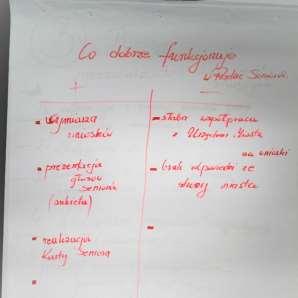 Co dobrze funkcjonuje
w Radzie Seniorów
+ -
- wymiana
wniosków
- słaba współpraca
z Urzędem Miasta
na wnioski
- prezentacja
głosów
seniorów
(ankieta)
- brak odpowiedzi ze
strony miasta
- realizacja
Karty Seniora